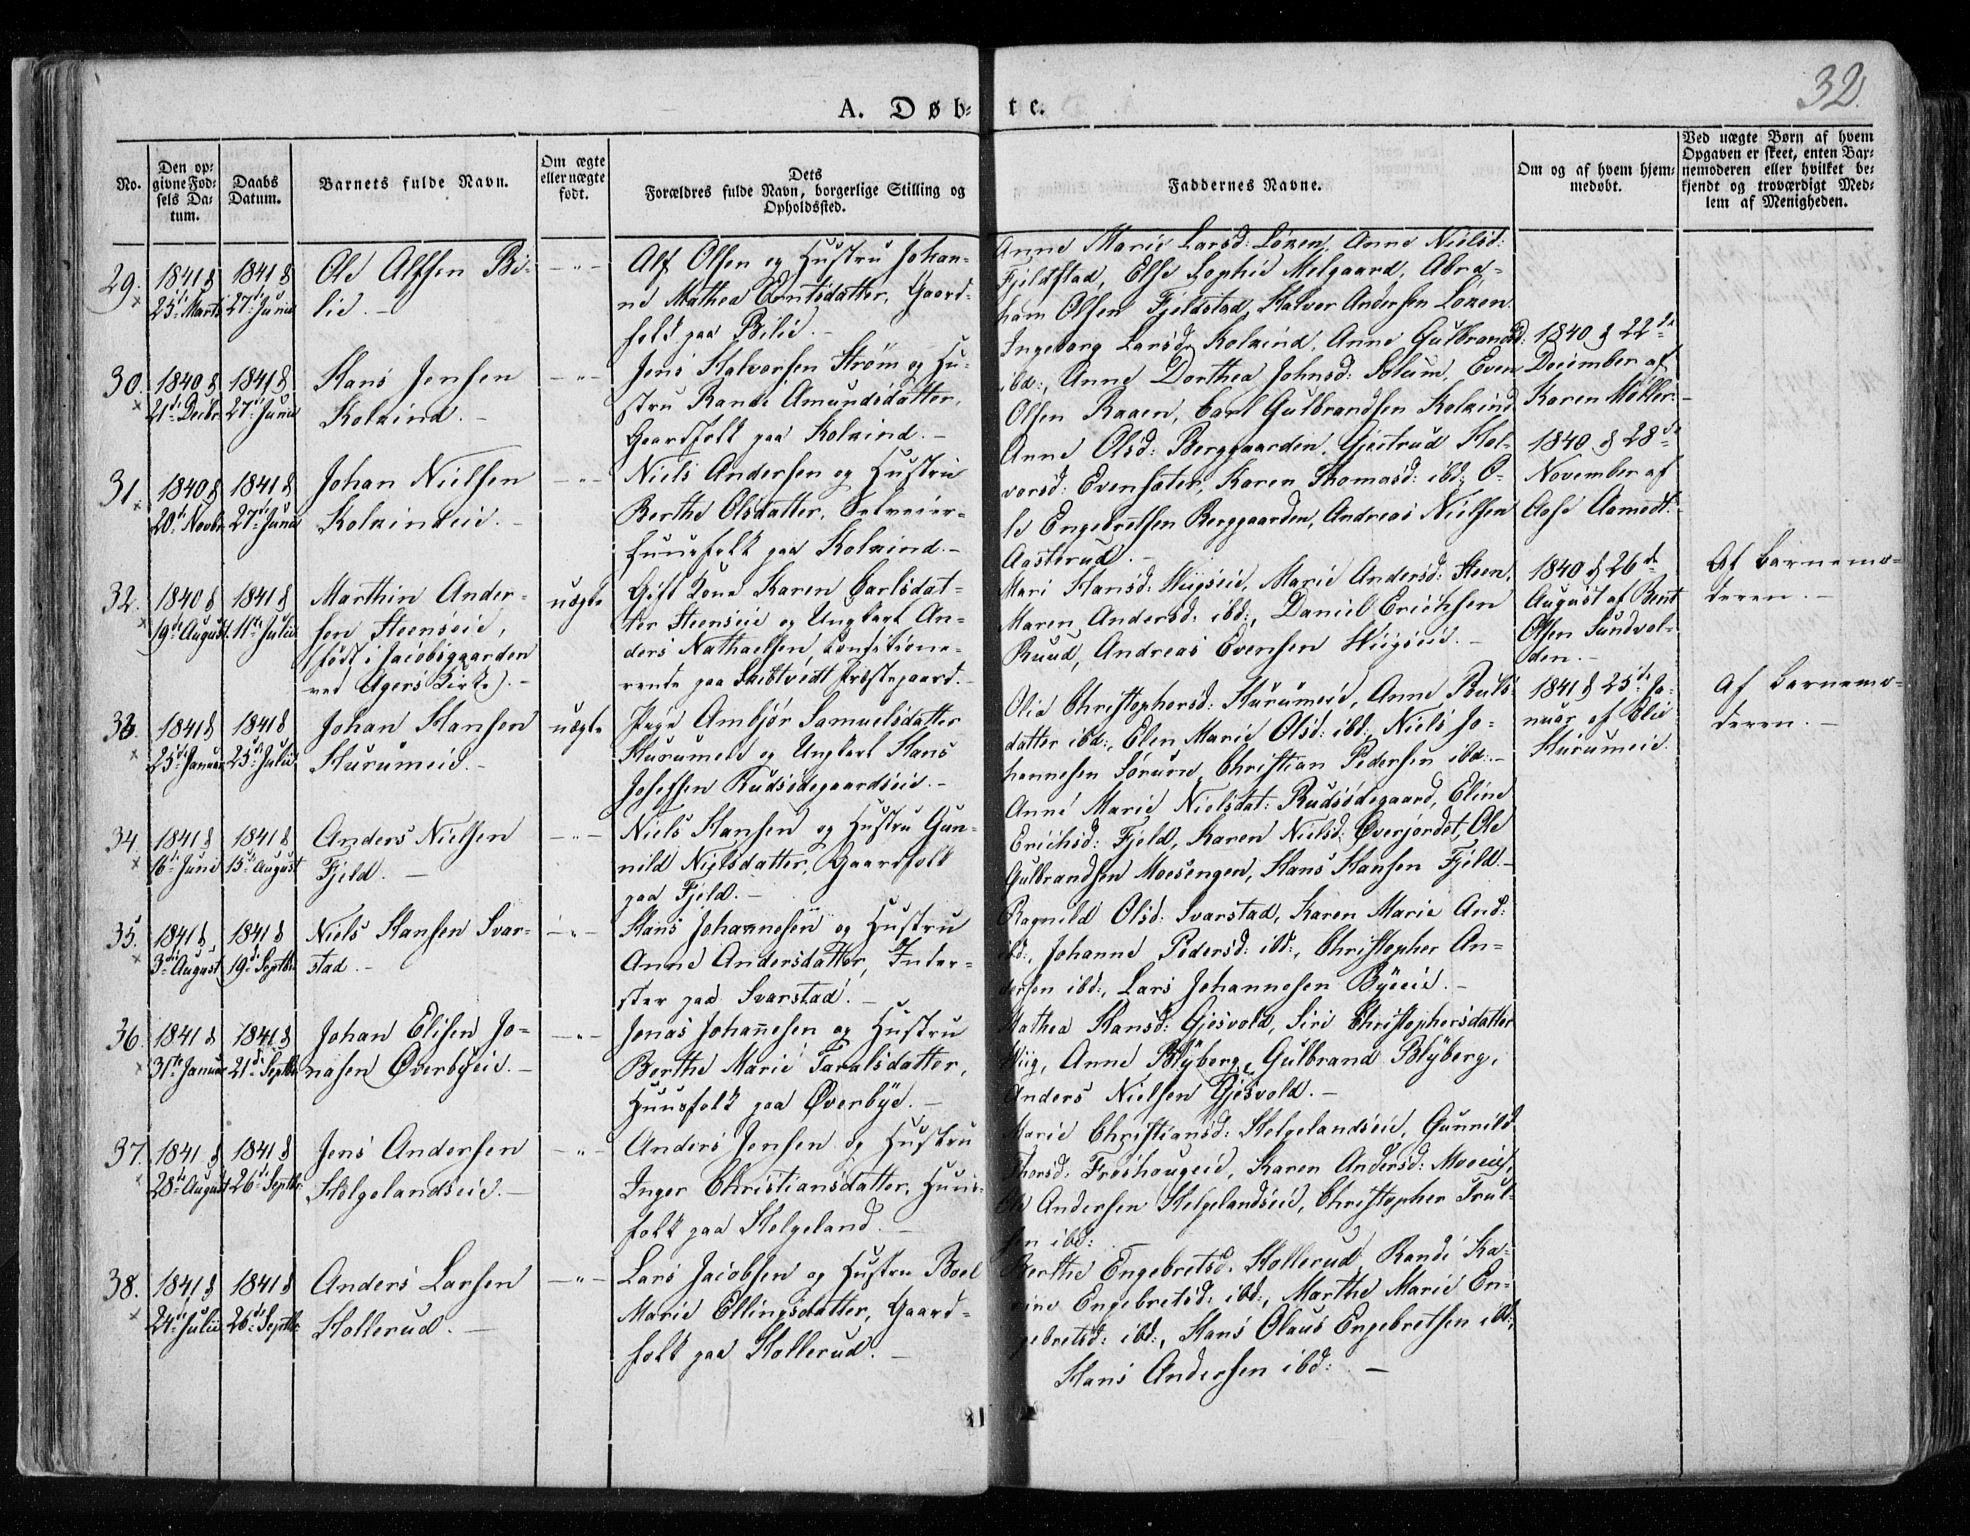 32.
A. Døb-te.
No.
Den op-
givne Fød-
sels Da-
tum.
Daabs
Datum.
Barnets fulde Navn.
Om ægte
eller uægte
født.
Dets
Forældres fulde Navn, borgerlige Stilling og
Opholdssted.
Faddernes Navne.
Om og af hvem hjem-
medøbt.
Ved uægte Børn af hvem
Opgaven er skeet, enten Bar-
nemoderen eller hvilket be-
kjendt og troværdigt Med-
lem af Menigheden.
29.
1841 d
25de Marts
1841 d
27de Junii
Ole Alfsen Bi-
lie. -
- " -
Alf Olsen og Hustru Johan-
ne Mathea Erntsdatter, Gaard-
folk paa Bilie. -
Anne Marie Larsd: Løken, Anne Nielsd:
Fjeldstad, Else Sophie Melgaard, Abra-
ham Olsen Fjeldstad, Halvor Andersen Løken.
30.
1840 d
21de Decbr
1841 d
27de Junii
Hans Jensen
Kolkind. -
- " -
Jens Halvorsen Strøm og Hu-
stru Randi Amundsdatter,
Gaardfolk paa Kolkind. -
Ingeborg Larsd: Kolkind, Anne Gulbrandsd:
ibd:, Anne Dorthea Johnsd: Solum, Even
Olsen Raaen, Carl Gulbrandsen Kolkind
1840 d 22de
December af
Karen Møller. -
31.
1840 d
20de Novbr
1841 d
27de Junii
Johan Nielsen
Kolkindeie. -
- " -
Niels Andersen og Hustru
Berthe Olsdatter, Selveier-
Huusfolk paa Kolkind. -
Anne Olsd: Berggaarden, Gjertrud Hal-
vorsd: Evensater, Karen Thomasd: ibd:, O-
le Engebretsen Berggaarden, Andreas Nielsen
Aasterud. -
1840 d 28de
November af
Aase Aamodt. -
32.
1840 d
19de August
1841 d
11te Julii
Marthin Ander-
sen Steenseie,
(født i Jacobsgaarden
ved Agers Kirke). -
uægte
Gift Kone Karen Carlsdat-
ter Steenseie og Ungkarl An-
ders Nathaelsen, Conditione-
rende paa Skibtvedt Præstegaard. -
Mari Hansd: Wiigseie, Marie Andersd: Steen,
Maren Andersd: ibd:, Daniel Erichsen
Ruud, Andreas Evensen Wiigseie. -
1840 d 26de
August af Bent
Olsen Sundvol-
den. -
Af Barnemo-
deren. -
33.
1841 d
25de Januar
1841 d
25de Julii
Johan Hansen
Hurumeie. -
uægte
Pige Ambjør Samuelsdatter
Hurumeie og Ungkarl Hans
Josefsen Rudsødegaardseie. -
Olia Christophersd: Hurumeie, Anne Pouls-
datter ibd:, Elen Marie Olsd: ibd:, Niels Jo-
hannesen Sørum, Christian Pedersen ibd: -
1841 d 25de Ja-
nuar af Elie
Hurumeie.
Af Barnemo-
deren. -
34.
1841 d
16de Junii
1841 d
15de August
Anders Nielsen
Fjeld. -
- " -
Niels Hansen og Hustru Gun-
nild Nielsdatter, Gaardfolk
paa Fjeld. -
Anne Marie Nielsdat: Rudsødegaard, Eline
Erichsd: Fjeld, Karen Nielsd: Øverjordet, Ole
Gulbrandsen Moesengen, Hans Hansen Fjeld. -
35.
1841 d
3die August
1841 d
19de Septbr
Niels Hansen Svar-
stad. -
- " -
Hans Johannesen og Hustru
Anne Andersdatter, Inder-
ster paa Svarstad. -
Ragnild Olsd: Svarstad, Karen Marie And:
ibd:, Johanne Pedersd: ibd:, Christopher An-
dersen ibd:, Lars Johannesen Byeeie. -
36.
1841 d
31te Januar
1841 d
21de Septbr
Johan Elisen Jo-
nasen Øverbyeie. -
- " -
Jonas Johannesen og Hustru
Berthe Marie Taralsdatter,
Huusfolk paa Øverbye. -
Mathea Hansd: Gjesvold, Siri Christophersdatter
Wiig, Anne Blyberg, Gulbrand Blyberg,
Anders Nielsen Gjesvold. -
37.
1841 d
28de August
1841 d
26de Septbr
Jens Andersen
Helgelandseie. -
- " -
Anders Jensen og Hustru
Inger Christiansdatter, Huus-
folk paa Helgeland. -
Marie Christiansd: Helgelandseie, Gunnild
Thorsd: Frøshougeie, Karen Andersd: Moeeie,
Ole Andersen Helgelandseie, Christopher Trul-
sen ibd:
38.
1841 d
24de Julii
1841 d
26de Septbr
Anders Larsen
Hollerud. -
- " -
Lars Jacobsen og Hustru Boel
Marie Ellingsdatter, Gaard-
folk paa Hollerud. -
Berthe Engebretsd: Hollerud, Randi Ka-
rine Engebretsd: ibd:, Marthe Marie En-
gebretsd: ibd:, Hans Olaus Engebretsen ibd:,
Hans Andersen ibd: -